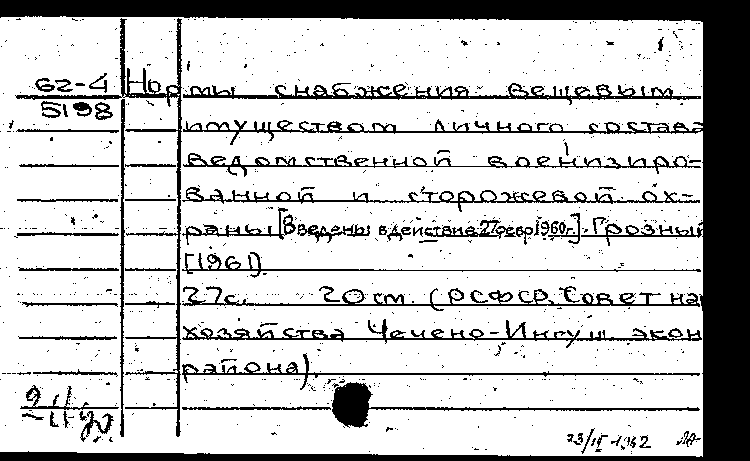 62-4 Нормы снабжения вещевым
5198 имуществом личного состава
ведомственной военизиро-
ванной и сторожевой ох-
раны [Введены в действие 27 февр 1960г.]. Грозный
[1961]
27с. 20 см. (РСФСР. Совет на
хозяйства Чечено-Ингуш. экон
района).